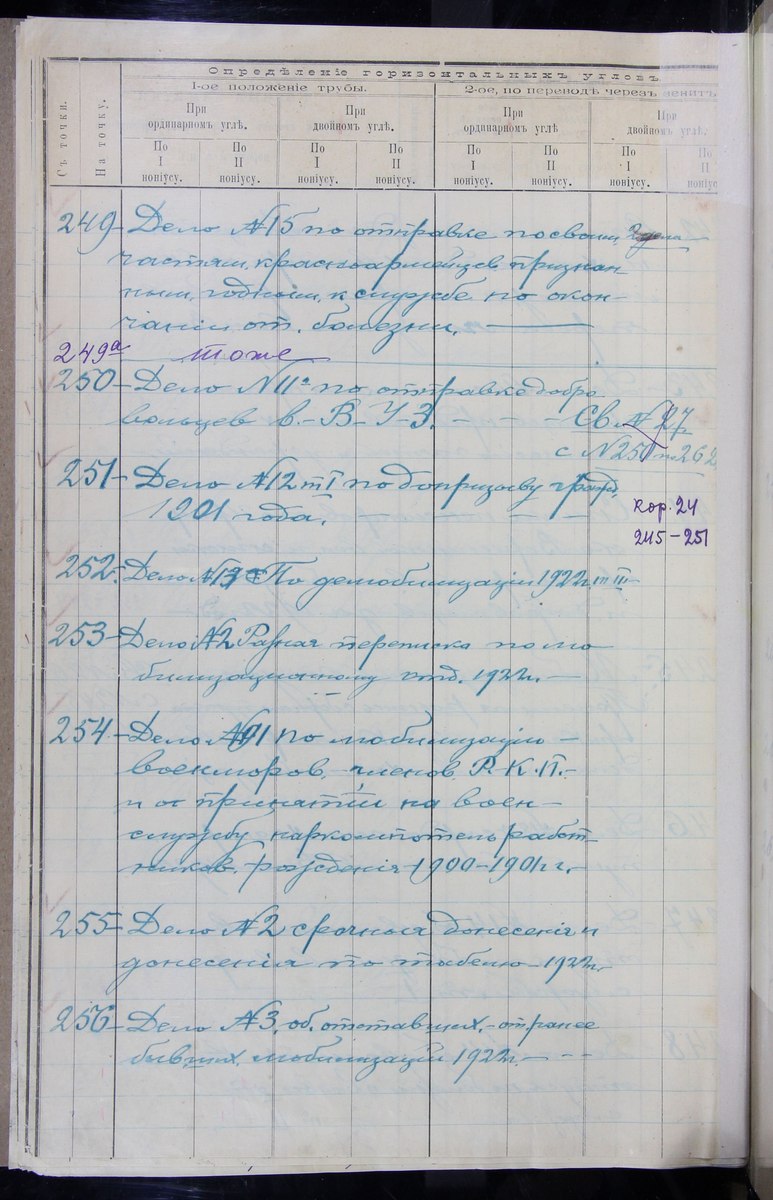 Опредѣленіе горизонтальныхъ угловъ
I-ое положеніе трубы. 2-ое, по переводѣ черезъ зенит
Съ точки. На точку. При ординарномъ углѣ. При двойномъ углѣ. При ординарномъ углѣ При двойномъ углѣ.
По I ноніусу. По II ноніусу. По I ноніусу. По II ноніусу. По I ноніусу. По II ноніусу. По I ноніусу. По II ноніус
249 – Дело №15 по отправке по своим
частям, красноармейцев признан
ным, годным, к службе по окон-
чаніи от. болезни.
249а тоже
250 – Дело №11а по отправке добро
вольцев в. – В – У – З. – – – Св. №27
с №250 по 262
251 – Дело №12 т I по допризыву гражд.
1901 года.
Кор. 24
245–251
252. Дело №13 По демобилизаціи 1922г.
253 – Дело №2 Разная переписка по мо
билизационному отд. 1922г. –
254 – Дело №91 по мобилизацію –
военморов, членов Р.К.П. –
и о принятіи на воен –
службу работ
ников рождения 1900–1901 гг. –
255 – Дело №2 срочныя донесенія и
донесенія по табелю 1922г.
256 – Дело №3. об. отставших, – от ранее
бывших мобилизаций 1922г. – – –